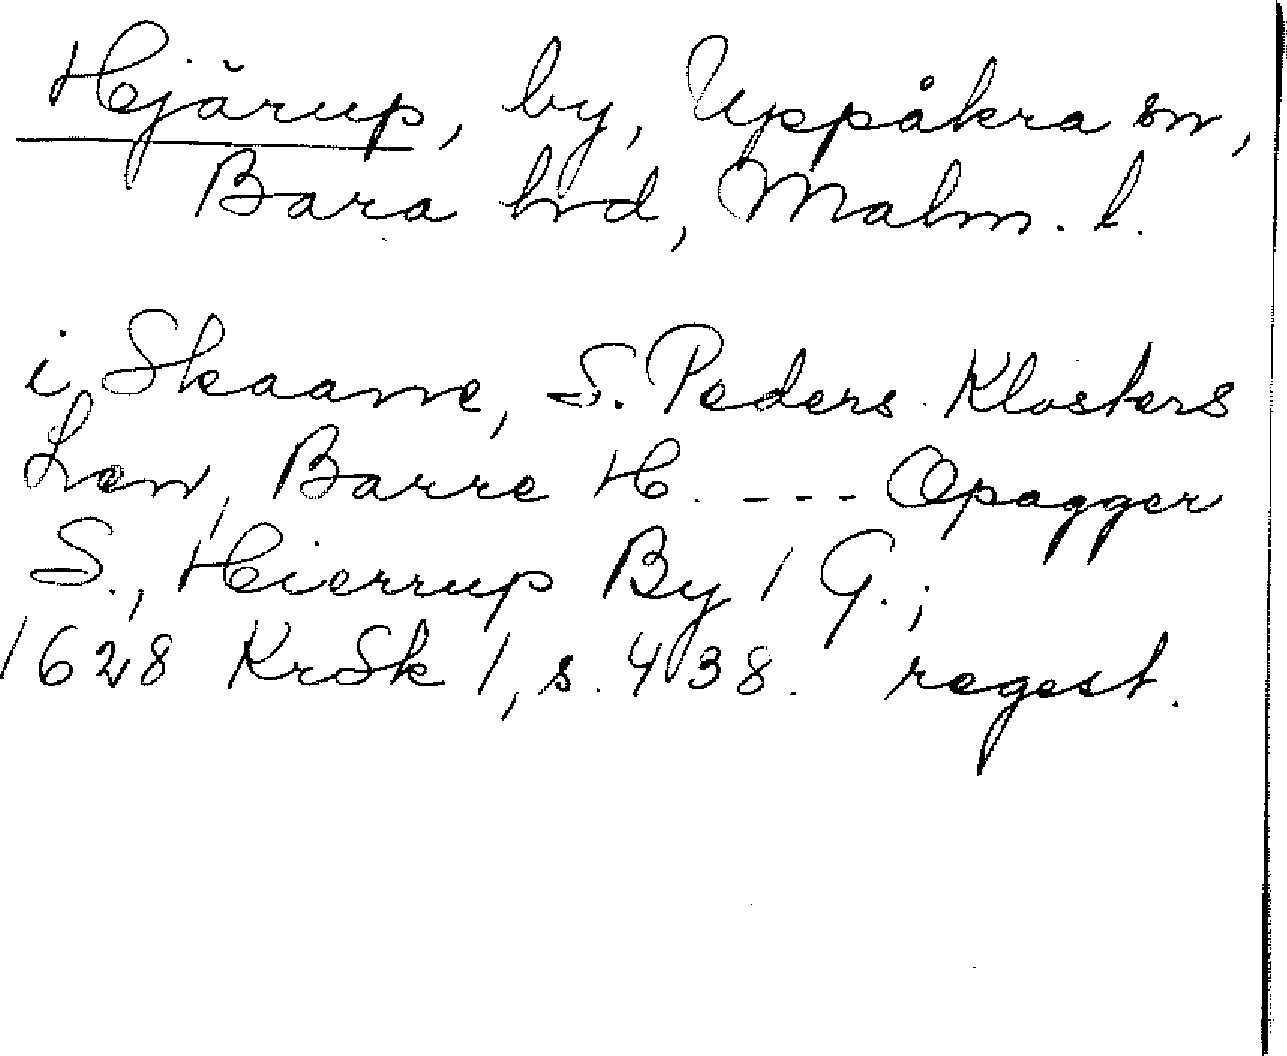 Hjärup, by, Uppåkra sn,
Bara hrd, Malm. l.
i Skaane, S. Peders Klosters
Len, Barre H. --- Opagger
S., Hierrup By 1 G.;
1628 KrSk 1, s. 438. regest.